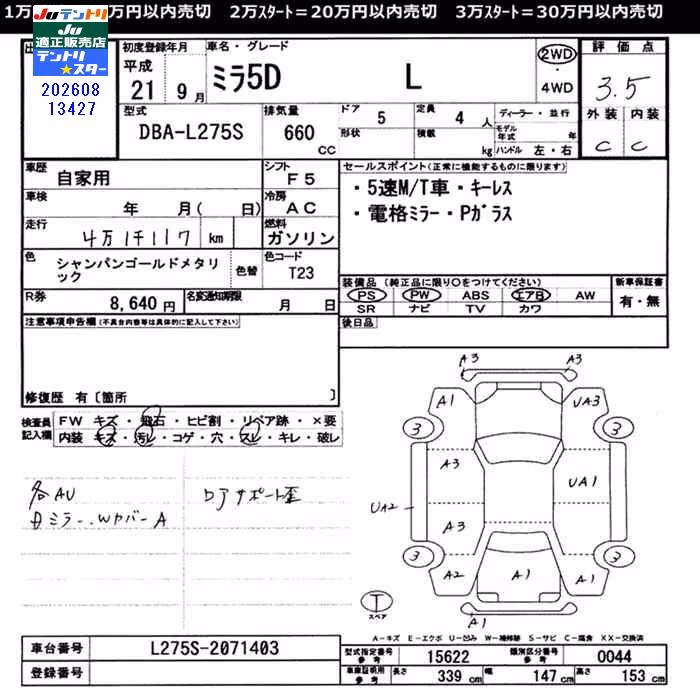 1万 万円以内売切 2万スタート＝20万円以内売切 3万スタート＝30万円以内売切
Juテントリ
適正販売店
テントリ
★スター
202608
13427
初度登録年月 車名・グレード
平成 21年 9月
ミラ5D L
2WD
・
4WD
評価点
3.5
外装 内装
C C
型式
DBA-L275S
排気量
660 CC
ドア 5
形状
定員 4 人
積載 kg
ディーラー・並行
モデル年式 年
ハンドル 左・右
車歴
自家用
シフト
F5
車検 年 月( 日)
冷房
AC
走行 4万1千117 km
燃料
ガソリン
色 シャンパンゴールドメタリック
色替
色コード
T23
R券 8,640円
名変通知期限 月 日
セールスポイント(正常に機能するものに限ります)
・5速M/T車・キーレス
・電格ミラー・Pガラス
装備品 (純正品に限り○をつけてください)
PS PW ABS エアB AW
SR ナビ TV カワ
新車保証書
有・無
後日品
注意事項申告欄(不具合内容等は具体的に記入して下さい)
修復歴 有〔箇所 〕
検査員記入欄
FW キズ・飛石・ヒビ割・リペア跡・×要
内装 キズ・汚レ・コゲ・穴・スレ・キレ・破レ
各AU
ミラー、Wカバー A
ロアサポート歪
A3 A3
A1 UA3
3 3
A3 UA1
UA2
A3
3 3
A2 A1 A1
T
スペア
A1
A-キズ E-エクボ U-凹み W-補修跡 S-サビ C-腐食 XX-交換済
車台番号 L275S-2071403
登録番号
型式指定番号 参考 15622
類別区分番号 参考 0044
車庫証明用 参考 長さ 339 cm 幅 147 cm 高さ 153 cm